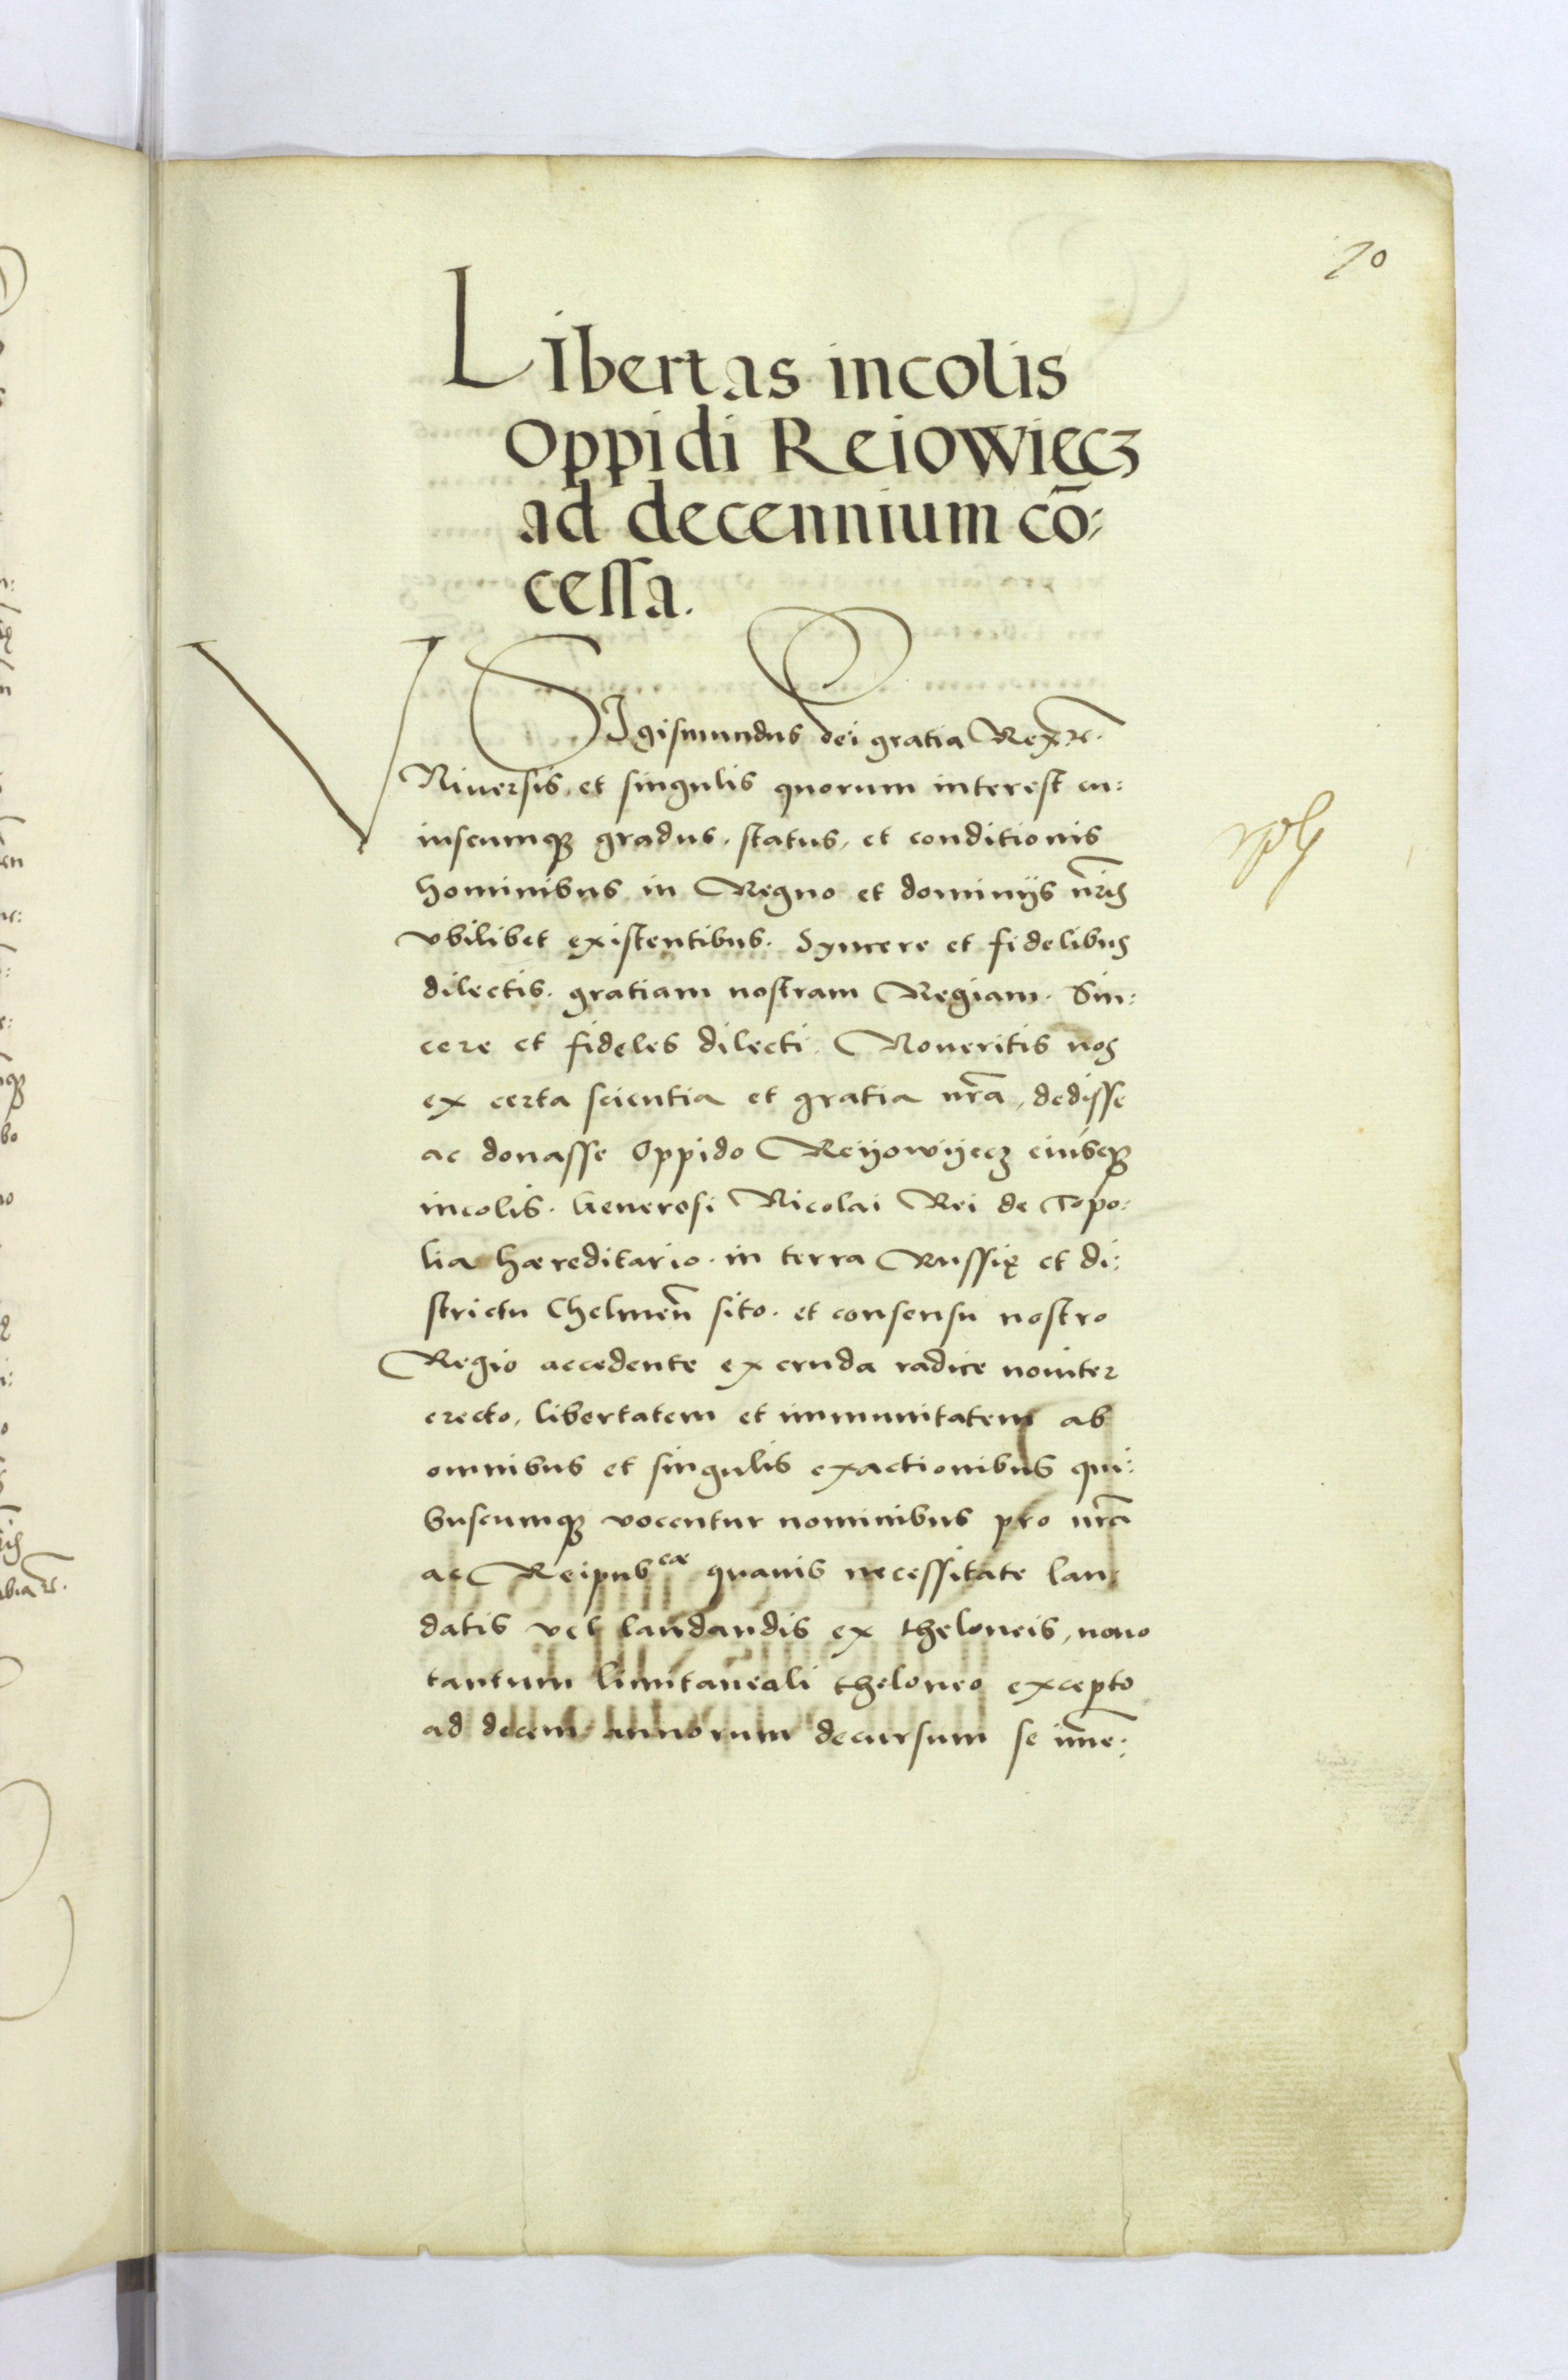 70
Libertas incolis
Oppidi Reiowięcz
ad decennium cō:
cessa.
SIgismundus dei gratia Rex etc.
VNiuersis et singulis quorum interest cu:
iuscumqꝫ gradus, status, et conditionis
hominibus in Regno et dominijs nr̃is
vbilibet existentibus. Syncere et fidelibus
dilectis. gratiam nostram Regiam. Sin:
cere et fideles dilecti. Noueritis nos
ex certa scientia et gratia nr̃a, dedisse
ac donasse Oppido Reÿowÿecz eiusqꝫ
incolis. Generosi Nicolai Rei de Topo:
lia hæreditario. in terra Russię et di:
strictu Chelmeñ sito. et consensu nostro
Regio accedente ex cruda radice nouiter
erecto, libertatem et immunitatem ab
omnibus et singulis exactionibus qui:
buscumqꝫ vocentur nominibus pro nr̃a
ac Reipubcæ quauis necessitate lau:
datis vel laudandis ex theloneis, nouo
tantum limitaneali theloneo excepto
ad decem annorum decursum se im̃e: